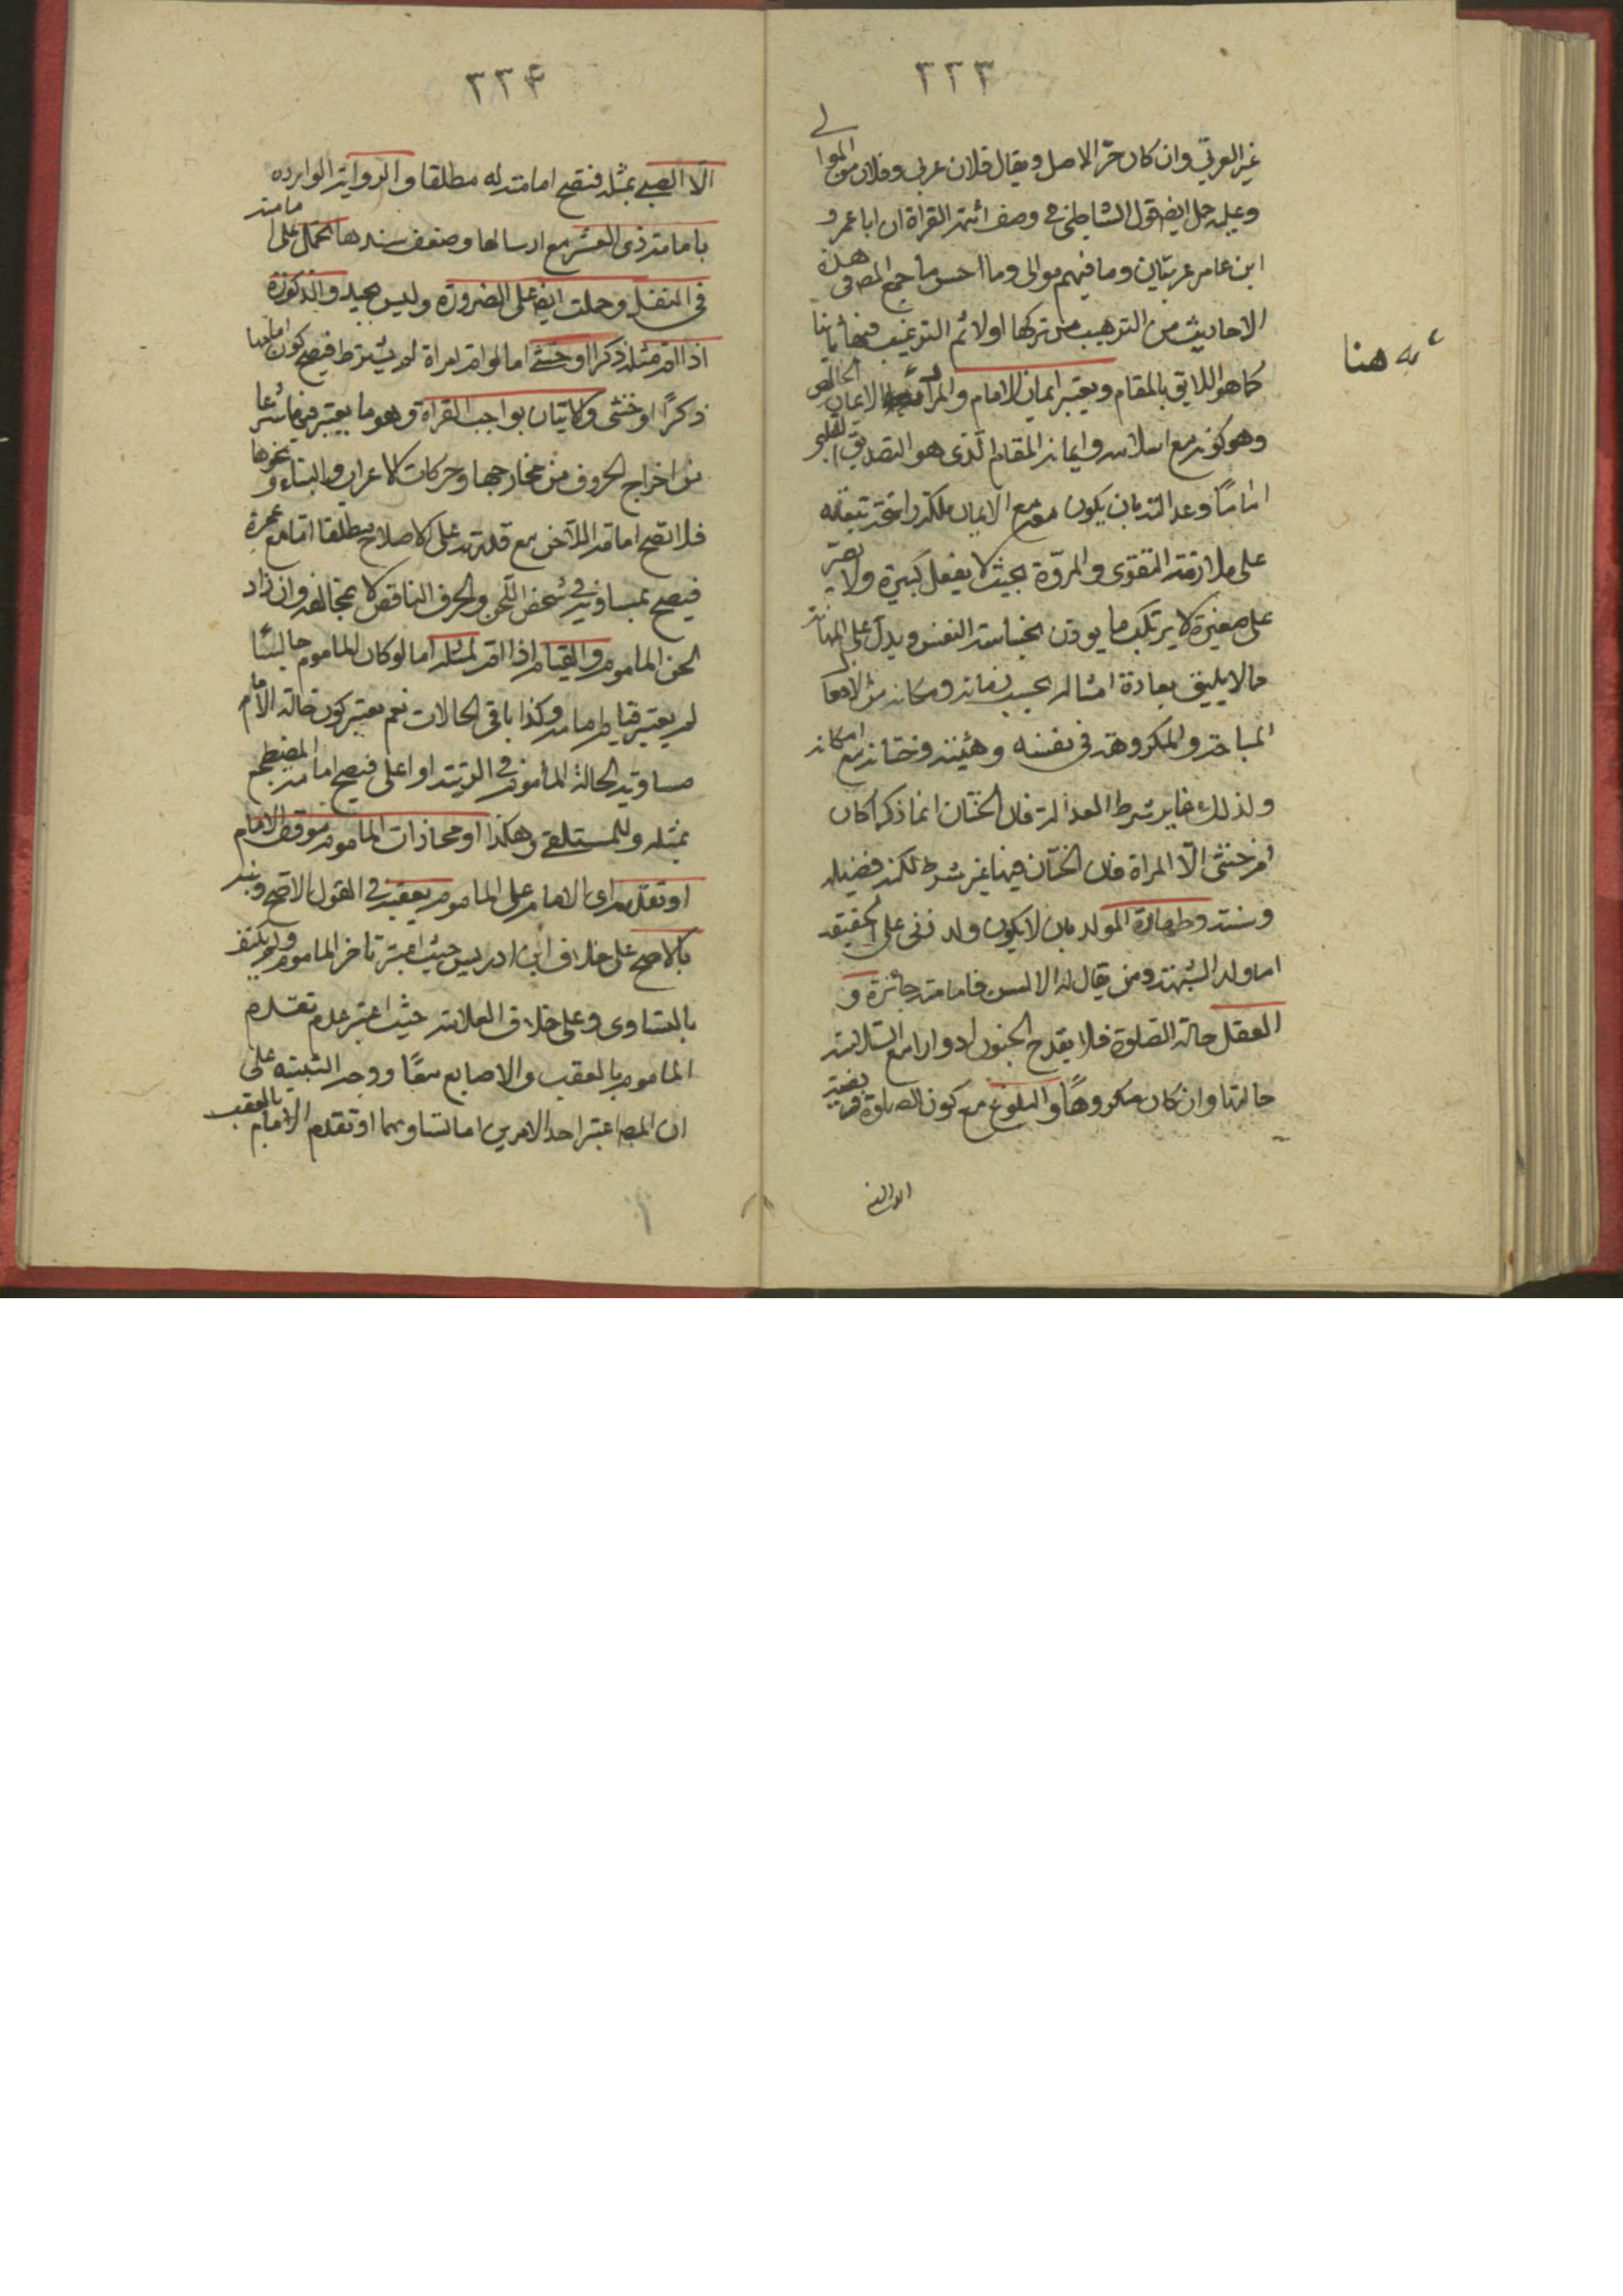 ٢٢٣
غير العربي وان كان حر الاصل ويقال فلان عربى وفلان من الموالى
وعليه حمل ايضا قول الشاطبى فى وصف ائمة القراة ان ابا عمرو
ابن عامر عربيان وما فيهم موالى وما احسن ما جمع المصـ فى هذه
الاحاديث من الترهيب من تركها اولا ثم الترغيب فيها ثانيا
كما هو اللايق بالمقام ويعتبر ايمان الامام والمراد الايمان الخالص
وهو كونه مع اسلامه وايمانه المقام الذى هو التصديق القلبى
اماميا وعدالته بان يكون معه مع الايمان ملكة راسخة تبعثه
على ملازمة التقوى والمروة بحيث لا يفعل كبيرة ولا يصر
على صغيرة لا يرتكب ما يوذن بخساسة النفس ويدل على المهانة
مما لا يليق بعادة امثاله بحسب زمانه ومكانه من الافعال
المباحة والمكروهة فى نفسه وهيئته وختانه مع امكانه
ولذلك غاير شرط العدالة فان الختان انما ذكرا كان
ام خنثى الا المراة فان الختان فيها غير شرط لكنه فضيلة
وسنة وطهارة المولد بان لا يكون ولد زنى على الحقيقة
اما ولد الشبهة ومن يقال له الالسن فامامته جائزة و
العقل حالة الصلوة فلا يقدح الجنون ادوارا مع السلامة
حالتها وان كان مكروها والبلوغ مع كون الصلوة فريضة
ـه هنا
٢٢٤
الا الصبى بمثله فتصح امامته له مطلقا والرواية الواردة
بامامة ذى العشر مع ارسالها وضعف سندها تحمل على امامته
فى النفل وحملت ايضا على الضرورة وليس بجيد والذكورة
اذا ام مثله ذكرا او خنثى اما لو ام امراة لم يشترط فيصح كون امامها
ذكرا او خنثى والاتيان بواجب القراة وهو ما يعتبر فيها شرعا
من اخراج الحروف من مخارجها وحركات الاعراب والبناء ونحوها
فلا تصح امامة اللاحن مع قدرته على الاصلاح مطلقا اما مع عجزه
فيصح بمساويه فى شخص اللحن والحرف الناقص لا بمخالفه وان زاد
لحن الماموم والقيام اذا ام لمثله اما لو كان الماموم جالسا
لم يعتبر قيام امامه وكذا باقى الحالات نعم يعتبر كون حالة الامام
مساوية لحالة الماموم فى الرتبة او اعلى فيصح امامة المضطجع
بمثله وللمستلقى وهكذا او محاذات الماموم موقف الامام
او تقدم اى الامام على الماموم بعقبه فى القول الاصح ونبه
بالاصح على خلاف ابن ادريس حيث اعتبر تاخر الماموم ولم يكتف
بالتساوى وعلى خلاف العلامة حيث اعتبر عدم تقدم
الماموم بالعقب والاصابع معا ووجه التنبيه على
ان المصـ اعتبر احد الامرين اما تساويهما او تقدم الامام بالعقب